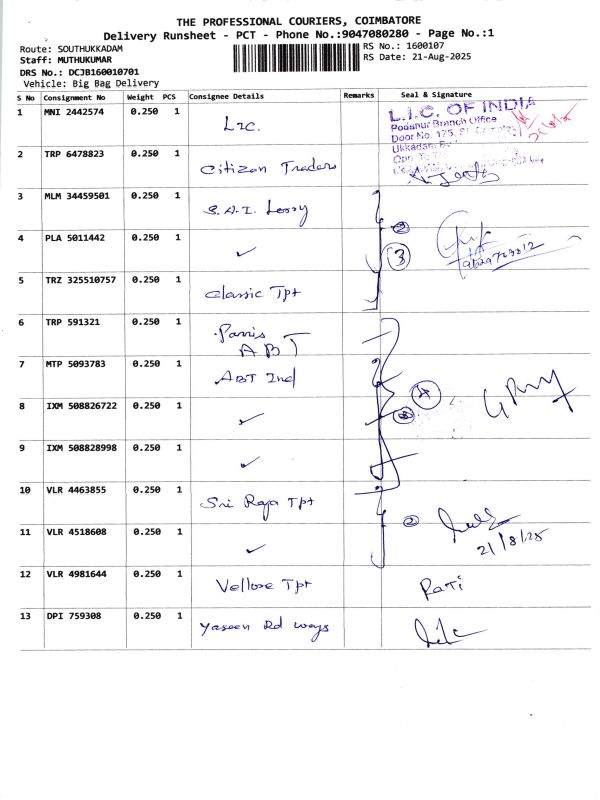 THE PROFESSIONAL COURIERS, COIMBATORE
Delivery Runsheet - PCT - Phone No.:9047080280 - Page No.:1
Route: SOUTHUKKADAM
RS No.: 1600107
Staff: MUTHUKUMAR
RS Date: 21-Aug-2025
DRS No.: DCJB160010701
Vehicle: Big Bag Delivery
S No Consignment No Weight PCS Consignee Details Remarks Seal & Signature
1 MNI 2442574 0.250 1 LIC.
L.I.C. OF INDIA
Podanur Branch Office
Door No. 175,
Ukkadam
2 TRP 6478823 0.250 1 Citizan Traders
3 MLM 34459501 0.250 1 S.A.I. Lorry
4 PLA 5011442 0.250 1 ✓ 3
5 TRZ 325510757 0.250 1 Classic Tpt
6 TRP 591321 0.250 1 Parris
ABT
7 MTP 5093783 0.250 1 ABT Ind
8 IXM 508826722 0.250 1 ✓
9 IXM 508828998 0.250 1 ✓
10 VLR 4463855 0.250 1 Sri Raja Tpt
11 VLR 4518608 0.250 1 ✓ 2
21/8/25
12 VLR 4981644 0.250 1 Vellore Tpt Rati
13 DPI 759308 0.250 1 Yaseen Rd ways